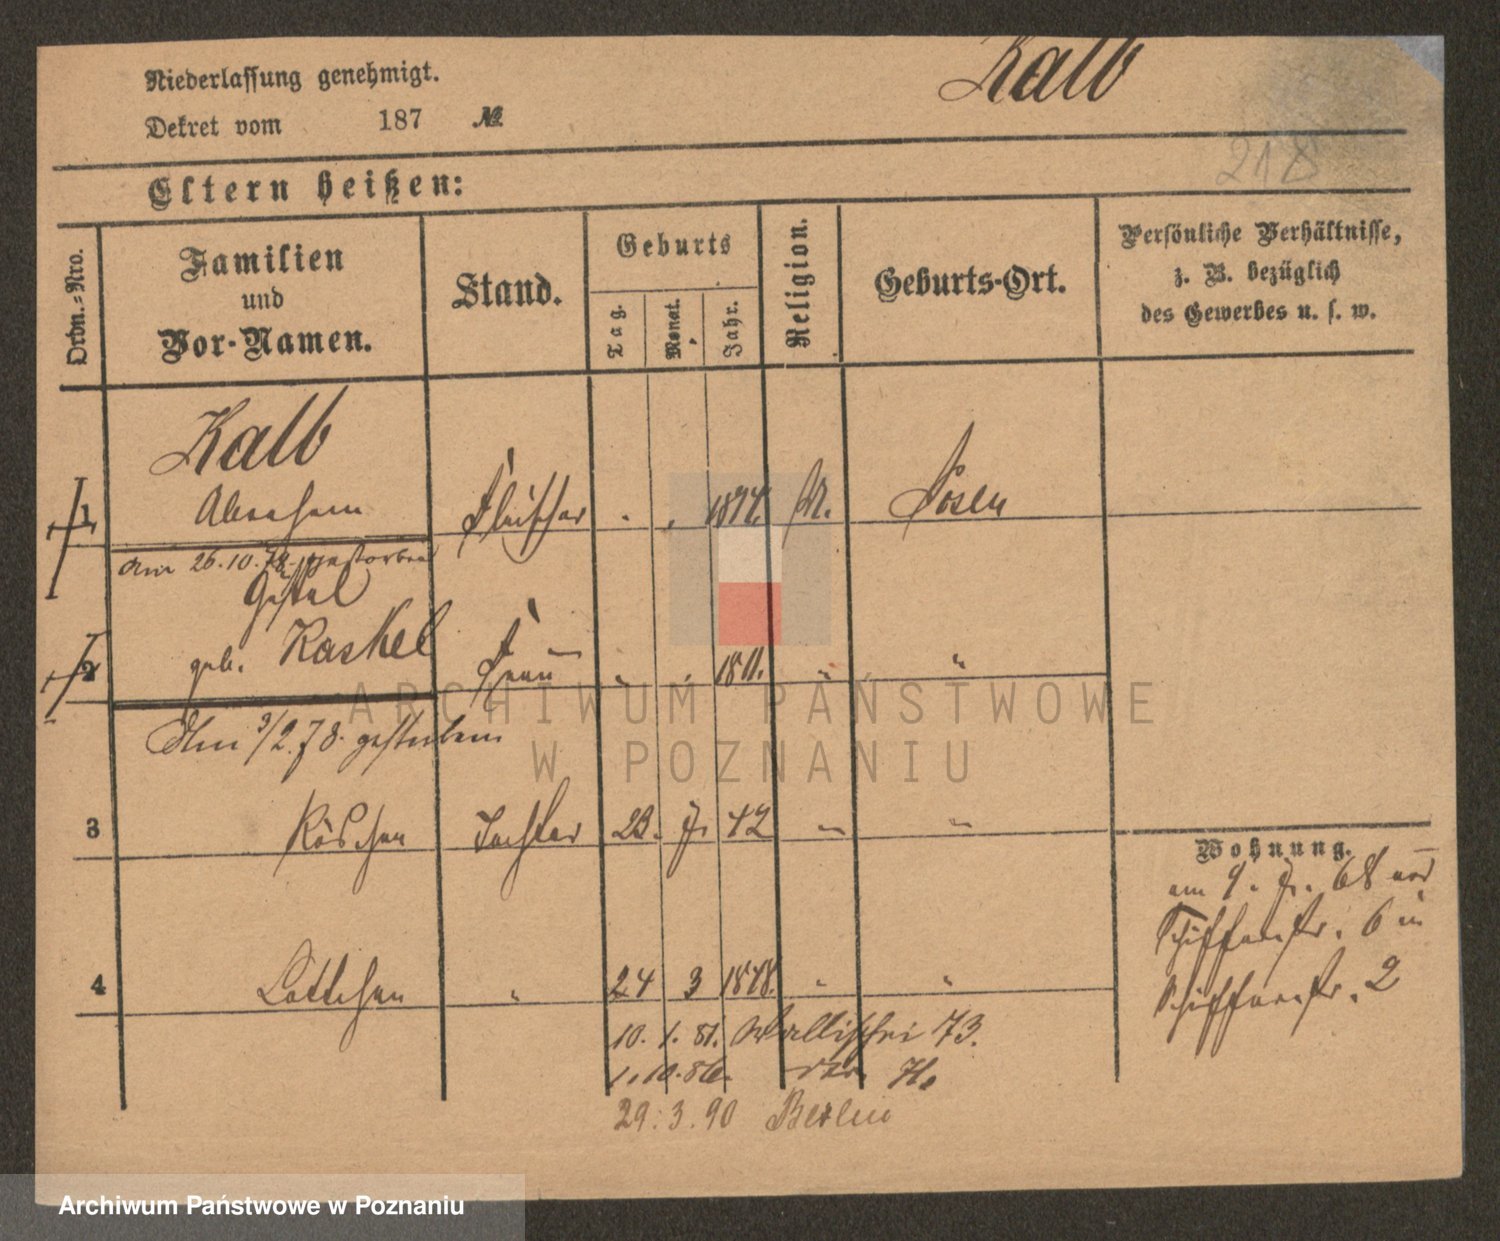 Niederlassung genehmigt.
Kalb
Dekret vom 187 №
218
Eltern heißen:
Ordn.=Nro.
Familien
und
Vor-Namen.
Stand.
Geburts
Tag.
Monat.
Jahr.
Religion.
Geburts-Ort.
Persönliche Verhältnisse,
z. B. bezüglich
des Gewerbes u. s. w.
Kalb
1 Abraham Fleischer Posen
Am 26.10.78 gestorben
geb. Kaskel
2 Frau 1811. " "
Am 3/2.78. gestorben
3 Röschen Tochter 23. 7. 42 " "
Wohnung.
am 9. 7. 68 von
Schifferstr. 6 in
Schifferstr. 2
4 Lottchen " 24 3 1848. " "
10. 1. 81. Wallischei 73.
1. 10. 86.
29. 3. 90 Berlin
ARCHIWUM PAŃSTWOWE
W POZNANIU
Archiwum Państwowe w Poznaniu